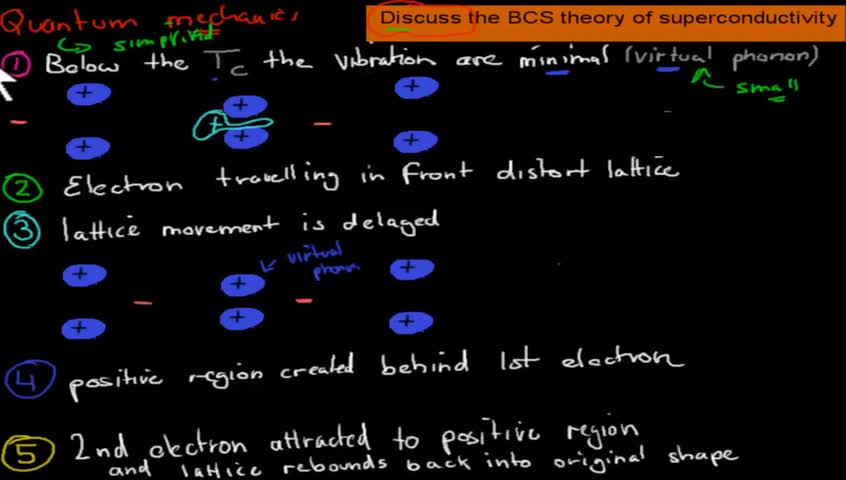 Quantum mechanics
Discuss the BCS theory of superconductivity
simplified
1 Below the Tc the vibration are minimal (virtual phonon)
small
+ + +
- + -
+ + +
2 Electron travelling in front distort lattice
3 lattice movement is delayed
virtual
phonon
+ + +
- -
+ + +
4 positive region created behind 1st electron
5 2nd electron attracted to positive region
and lattice rebounds back into original shape